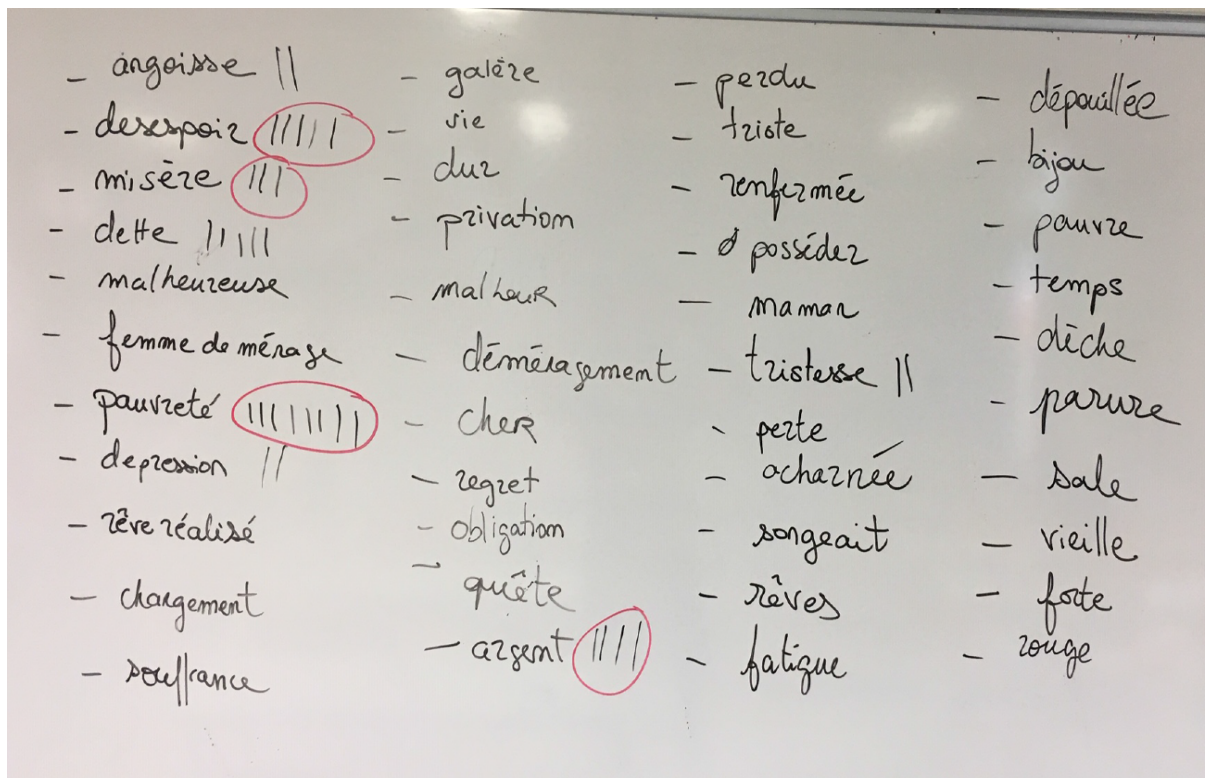 - angoisse ||
- desespoir |||||
- misère |||
- dette |||||
- malheureuse
- femme de ménage
- pauvreté ||||||||
- depression ||
- rêve réalisé
- changement
- souffrance
- galère
- vie
- dur
- privation
- malheur
- déménagement
- cher
- regret
- obligation
- quête
- argent ||||
- perdu
- triste
- renfermée
- posséder
- maman
- tristesse ||
- perte
- acharnée
- songeait
- rêves
- fatigue
- dépouillée
- bijou
- pauvre
- temps
- dèche
- parure
- sale
- vieille
- forte
- rouge